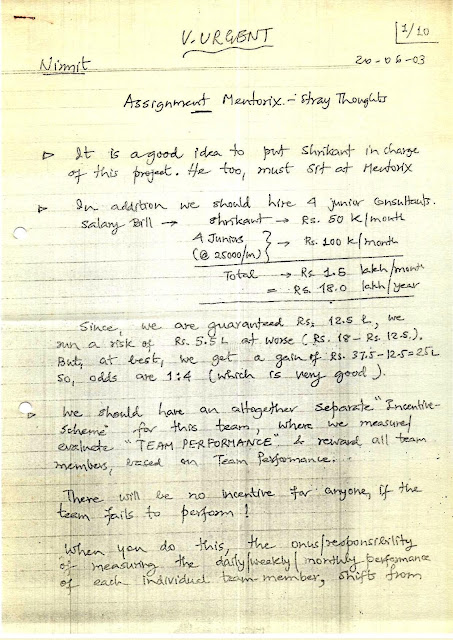 V. URGENT
1/10
Nirmit
20-06-03
Assignment Mentorix - Stray Thoughts
▷ It is a good idea to put Shrikant in charge
of this project. He too, must sit at Mentorix
▷ In addition we should hire 4 junior Consultants.
Salary Bill → Shrikant → Rs. 50 K/month
4 Juniors
(@ 25000/m) } → Rs. 100 K/month
Total → Rs 1.5 lakh/month
= Rs. 18.0 lakh/year
Since, we are guaranteed Rs. 12.5 L, we
run a risk of Rs. 5.5 L at worse (Rs. 18 - Rs. 12.5).
But, at best, we get a gain of Rs. 37.5-12.5=25L
So, odds are 1:4 (which is very good).
▷ We should have an altogether separate "Incentive-
Scheme" for this team, where we measure/
evaluate "TEAM PERFORMANCE" & reward all team
members, based on Team Performance.
There will be no incentive for anyone, if the
team fails to perform!
When you do this, the onus/responsibility
of measuring the daily/weekly/monthly performance
of each individual team-member, shifts from